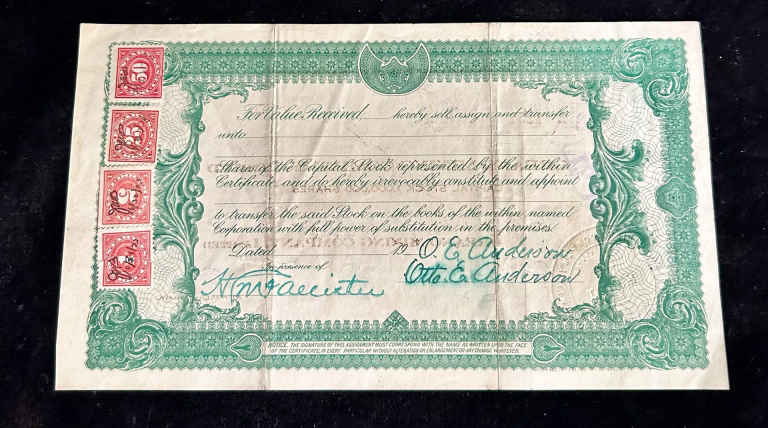 For Value Received hereby sell, assign and transfer
unto
Shares of the Capital Stock represented by the within
Certificate and do hereby irrevocably constitute and appoint
to transfer the said Stock on the books of the within named
Corporation with full power of substitution in the premises.
Dated 19
O. E. Anderson
In presence of
Otto. E. Anderson
NOTICE. THE SIGNATURE OF THIS ASSIGNMENT MUST CORRESPOND WITH THE NAME AS WRITTEN UPON THE FACE
OF THE CERTIFICATE, IN EVERY PARTICULAR, WITHOUT ALTERATION OR ENLARGEMENT OR ANY CHANGE WHATEVER.
50
25
5